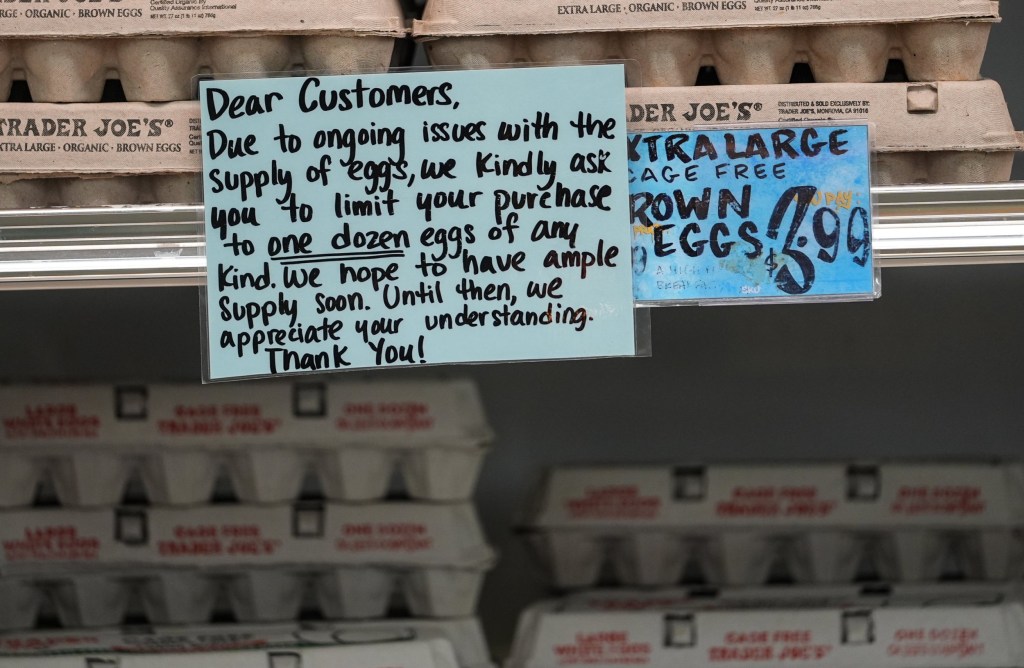 Certified Organic by
Quality Assurance International
RGE · ORGANIC · BROWN EGGS
NET WT 27 oz (1 lb 11 oz) 765g
EXTRA LARGE · ORGANIC · BROWN EGGS
TRADER JOE'S®
EXTRA LARGE · ORGANIC · BROWN EGGS
DER JOE'S®
DISTRIBUTED & SOLD EXCLUSIVELY BY:
TRADER JOE'S, MONROVIA, CA 91016
Dear Customers,
Due to ongoing issues with the
supply of eggs, we kindly ask
you to limit your purchase
to one dozen eggs of any
kind. We hope to have ample
supply soon. Until then, we
appreciate your understanding.
Thank You!
XTRA LARGE
CAGE FREE
ROWN
EGGS!
$3.99
SKU
LARGE CAGE FREE ONE DOZEN
WHITE EGGS TRADER JOE'S
LARGE CAGE FREE ONE DOZEN
WHITE EGGS TRADER JOE'S
LARGE CAGE FREE ONE DOZEN
TRADER JOE'S
LARGE CAGE FREE ONE DOZEN
WHITE EGGS TRADER JOE'S